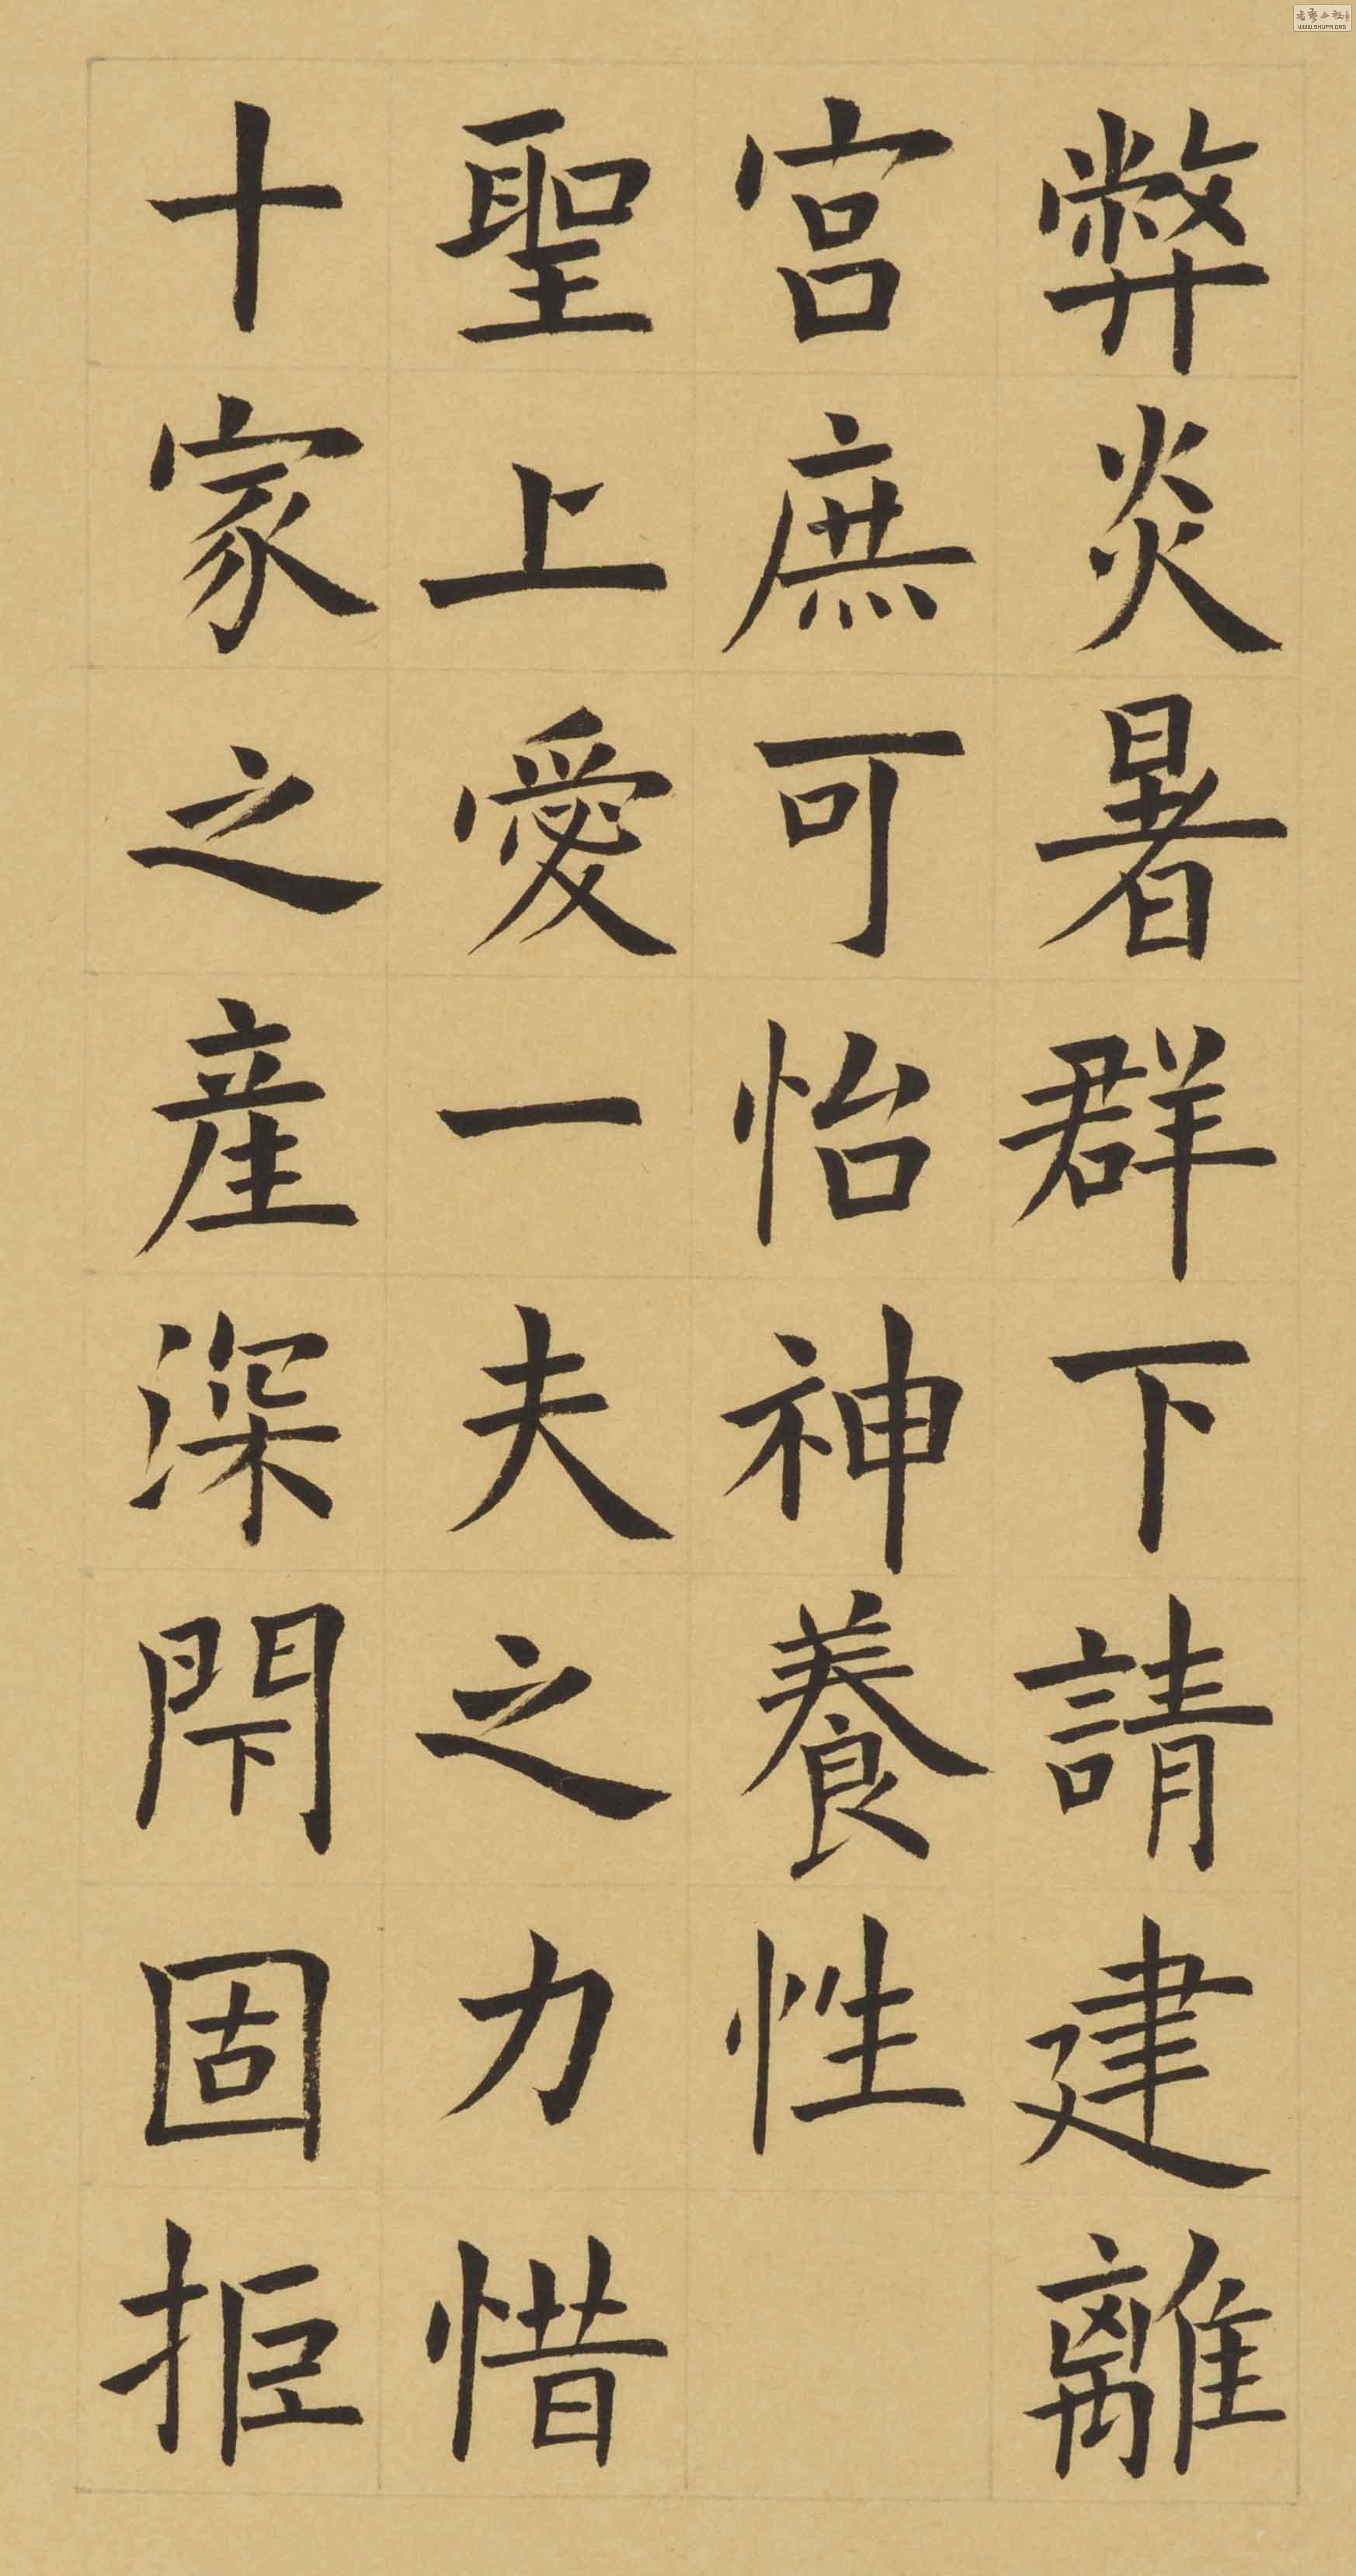 弊炎暑群下請建離
宫庶可怡神養性
聖上愛一夫之力惜
十家之產深閇固拒
WWW.SHUFA.ORG